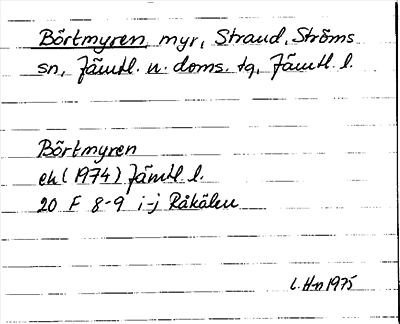 Börtmyren, myr, Strand, Ströms
sn, Jämtl. n. doms. tg, Jämtl. l.
Börtmyren
ek (1974) Jämtl l.
20 F 8-9 i-j Råkälen
L. H-n 1975